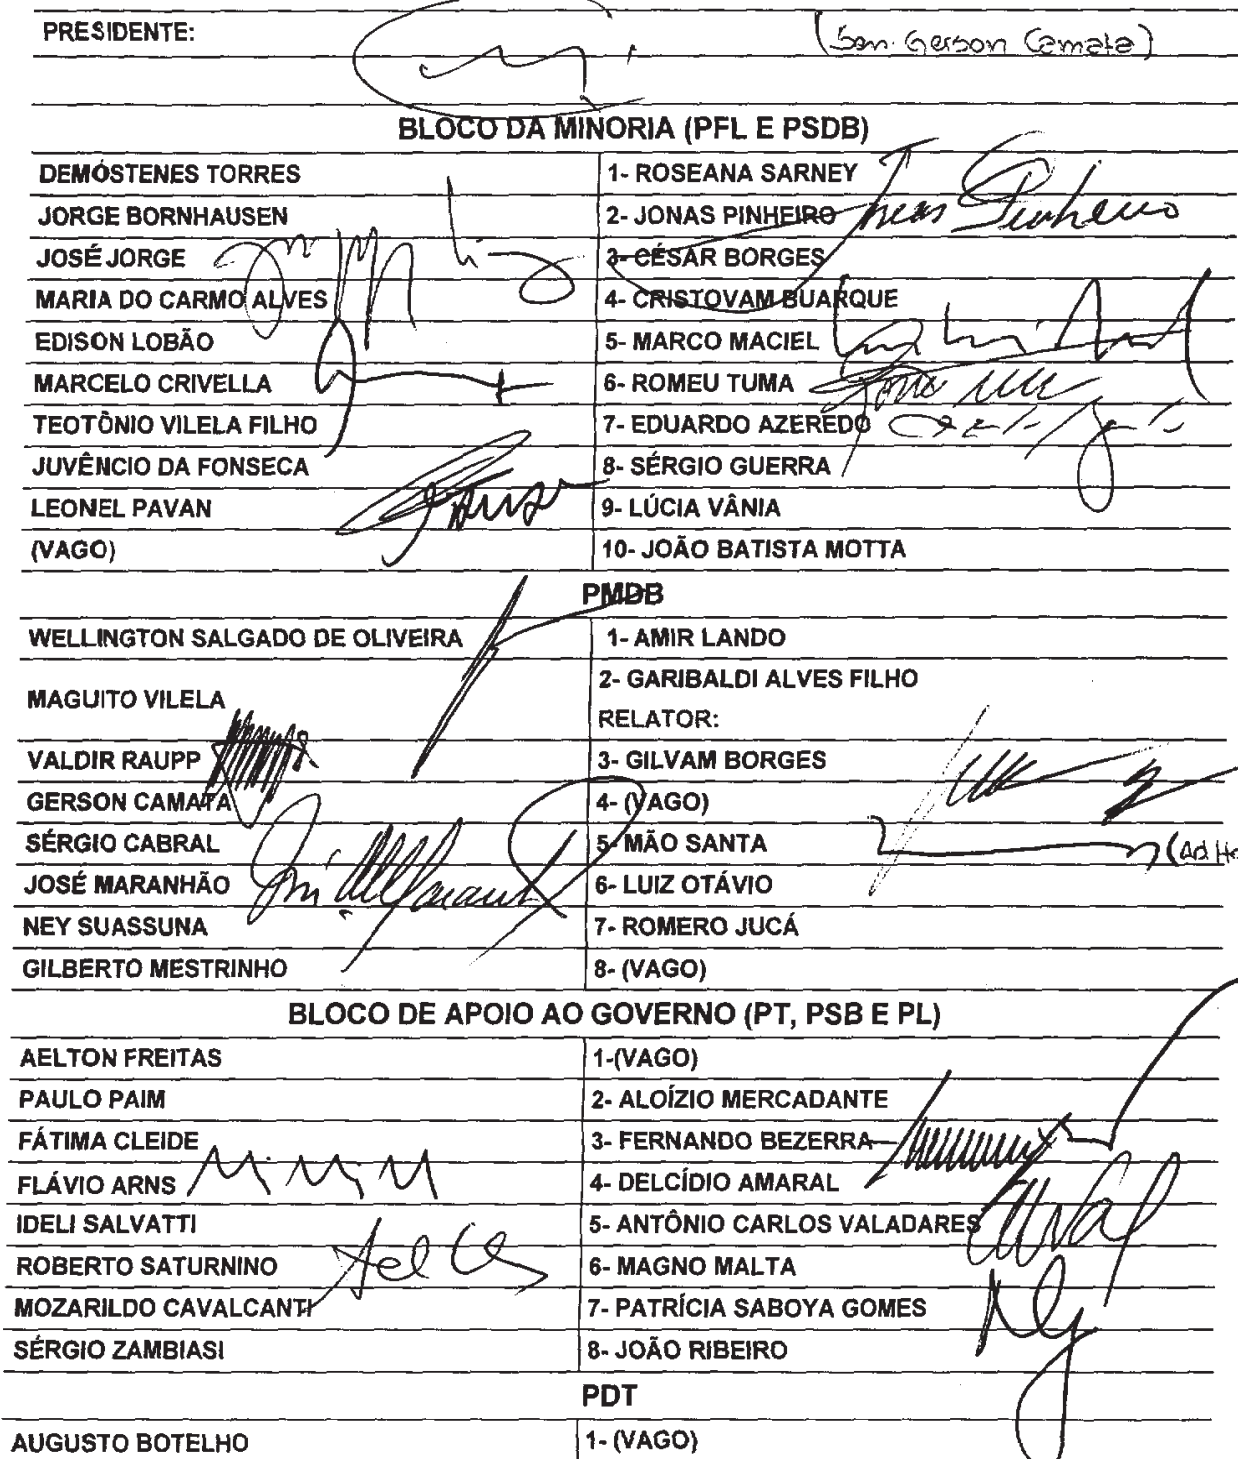 PRESIDENTE: (Sen. Gerson Camata)
BLOCO DA MINORIA (PFL E PSDB)
DEMÓSTENES TORRES 1- ROSEANA SARNEY
JORGE BORNHAUSEN 2- JONAS PINHEIRO Jonas Pinheiro
JOSÉ JORGE 3- CÉSAR BORGES
MARIA DO CARMO ALVES 4- CRISTOVAM BUARQUE
EDISON LOBÃO 5- MARCO MACIEL
MARCELO CRIVELLA 6- ROMEU TUMA
TEOTÔNIO VILELA FILHO 7- EDUARDO AZEREDO
JUVÊNCIO DA FONSECA 8- SÉRGIO GUERRA
LEONEL PAVAN 9- LÚCIA VÂNIA
(VAGO) 10- JOÃO BATISTA MOTTA
PMDB
WELLINGTON SALGADO DE OLIVEIRA 1- AMIR LANDO
MAGUITO VILELA 2- GARIBALDI ALVES FILHO
RELATOR:
VALDIR RAUPP 3- GILVAM BORGES
GERSON CAMATA 4- (VAGO)
SÉRGIO CABRAL 5- MÃO SANTA (Ad Ho
JOSÉ MARANHÃO 6- LUIZ OTÁVIO
NEY SUASSUNA 7- ROMERO JUCÁ
GILBERTO MESTRINHO 8- (VAGO)
BLOCO DE APOIO AO GOVERNO (PT, PSB E PL)
AELTON FREITAS 1-(VAGO)
PAULO PAIM 2- ALOÍZIO MERCADANTE
FÁTIMA CLEIDE 3- FERNANDO BEZERRA
FLÁVIO ARNS 4- DELCÍDIO AMARAL
IDELI SALVATTI 5- ANTÔNIO CARLOS VALADARES
ROBERTO SATURNINO 6- MAGNO MALTA
MOZARILDO CAVALCANTI 7- PATRÍCIA SABOYA GOMES
SÉRGIO ZAMBIASI 8- JOÃO RIBEIRO
PDT
AUGUSTO BOTELHO 1- (VAGO)